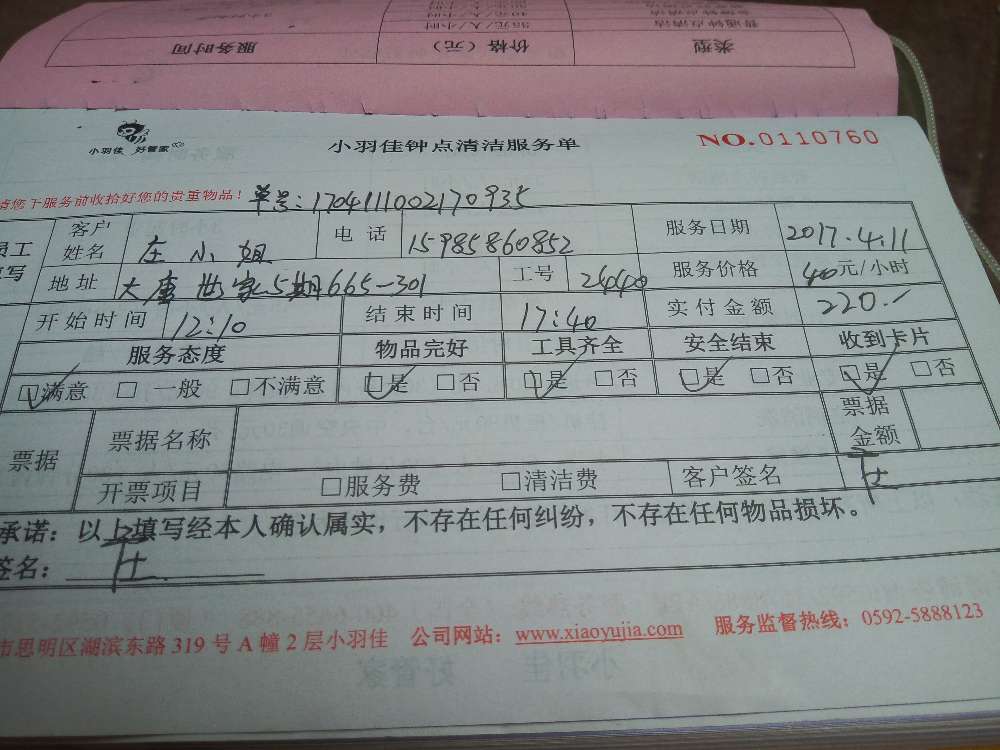 类型 价格（元） 服务时间
小羽佳 好管家
小羽佳钟点清洁服务单
NO.0110760
请您于服务前收拾好您的贵重物品！ 单号：1704111002170935
客户姓名 庄小姐 电话 15985860852 服务日期 2017.4.11
地址 大唐世家5期665-301 工号 24040 服务价格 40元/小时
开始时间 12:10 结束时间 17:40 实付金额 220.
服务态度 物品完好 工具齐全 安全结束 收到卡片
☑满意 □一般 □不满意 ☑是 □否 ☑是 □否 ☑是 □否 ☑是 □否
票据 票据名称 票据金额
开票项目 □服务费 □清洁费 客户签名
承诺：以上填写经本人确认属实，不存在任何纠纷，不存在任何物品损坏。
签名：
市思明区湖滨东路319号A幢2层小羽佳 公司网站：www.xiaoyujia.com 服务监督热线：0592-5888123